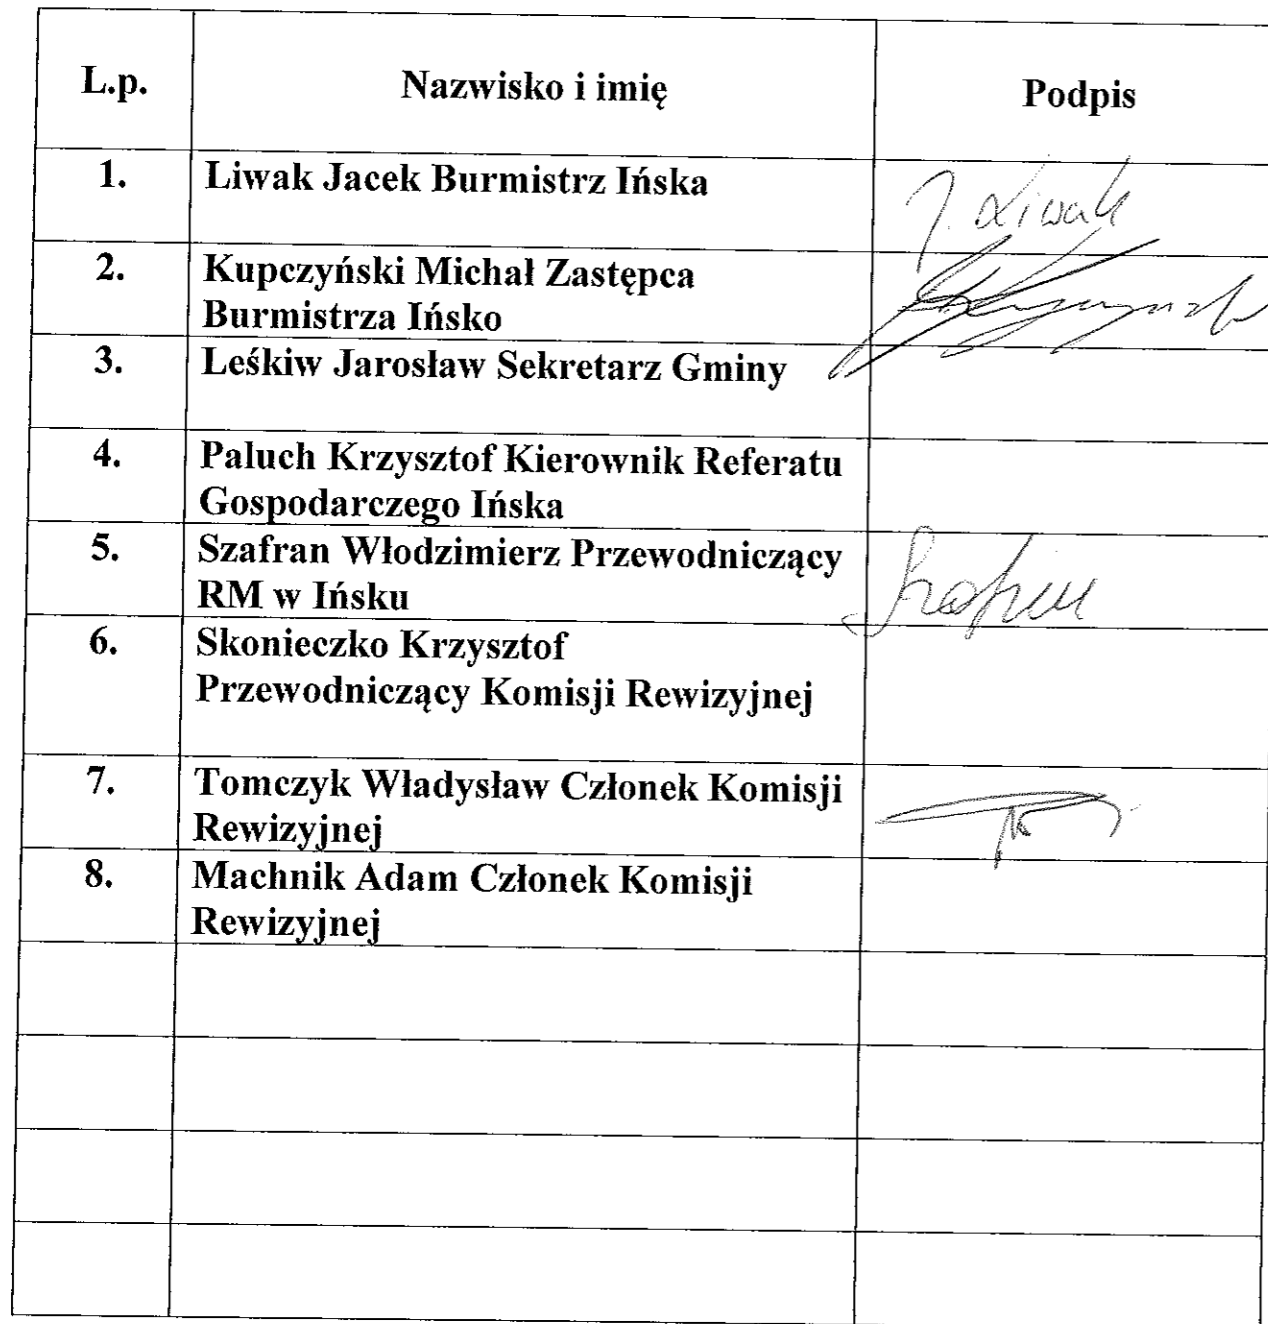 L.p. Nazwisko i imię Podpis
1. Liwak Jacek Burmistrz Ińska J. Liwak
2. Kupczyński Michał Zastępca
Burmistrza Ińsko
3. Leśkiw Jarosław Sekretarz Gminy
4. Paluch Krzysztof Kierownik Referatu
Gospodarczego Ińska
5. Szafran Włodzimierz Przewodniczący
RM w Ińsku
6. Skonieczko Krzysztof
Przewodniczący Komisji Rewizyjnej
7. Tomczyk Władysław Członek Komisji
Rewizyjnej
8. Machnik Adam Członek Komisji
Rewizyjnej